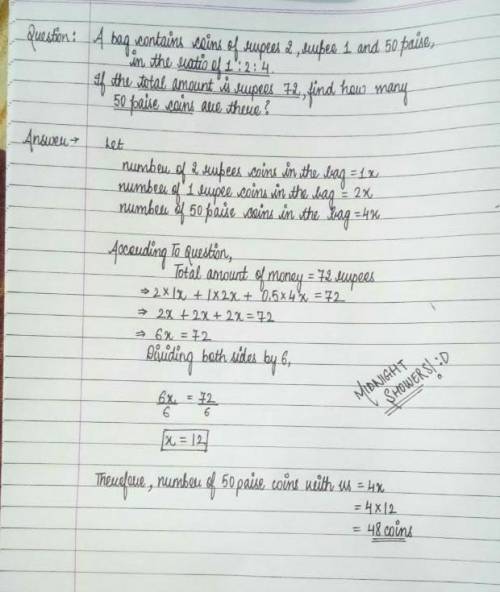 Question: A bag contains coins of rupees 2, rupee 1 and 50 paise,
in the ratio of 1:2:4.
If the total amount is rupees 72, find how many
50 paise coins are there?
Answer→ Let
number of 2 rupees coins in the bag = 1x
number of 1 rupee coins in the bag = 2x
number of 50 paise coins in the bag = 4x
According To Question,
Total amount of money = 72 rupees
⇒ 2×1x + 1×2x + 0.5×4x = 72
⇒ 2x + 2x + 2x = 72
⇒ 6x = 72
Dividing both sides by 6,
6x/6 = 72/6
x = 12
MIDNIGHT
SHOWERS! :D
Therefore, number of 50 paise coins with us = 4x
= 4×12
= 48 coins